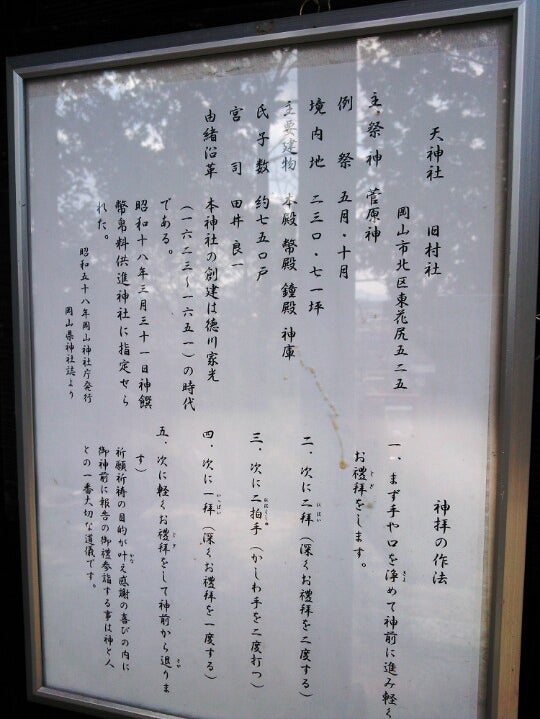 天神社　旧村社
岡山市北区東花尻五二五
主祭神　菅原神
例祭　五月・十月
境内地　二三〇・七一坪
主要建物　本殿 幣殿 鐘殿 神庫
氏子数　約七五〇戸
宮司　田井良一
由緒沿革　本神社の創建は徳川家光
（一六二三〜一六五一）の時代
である。
昭和十八年三月三十一日神饌
幣帛料供進神社に指定せら
れた。
昭和五十八年岡山神社庁発行
岡山県神社誌より
神拝の作法
一、まず手や口を浄めて神前に進み軽く
お禮拝をします。
二、次に二拝（深くお禮拝を二度する）
三、次に二拍手（かしわ手を二度打つ）
四、次に一拝（深くお禮拝を一度する）
五、次に軽くお禮拝をして神前から退りま
す）
祈願祈祷の目的が叶え感謝の喜びの内に
御神前に報告の御禮参詣する事は神と人
との一番大切な道儀です。